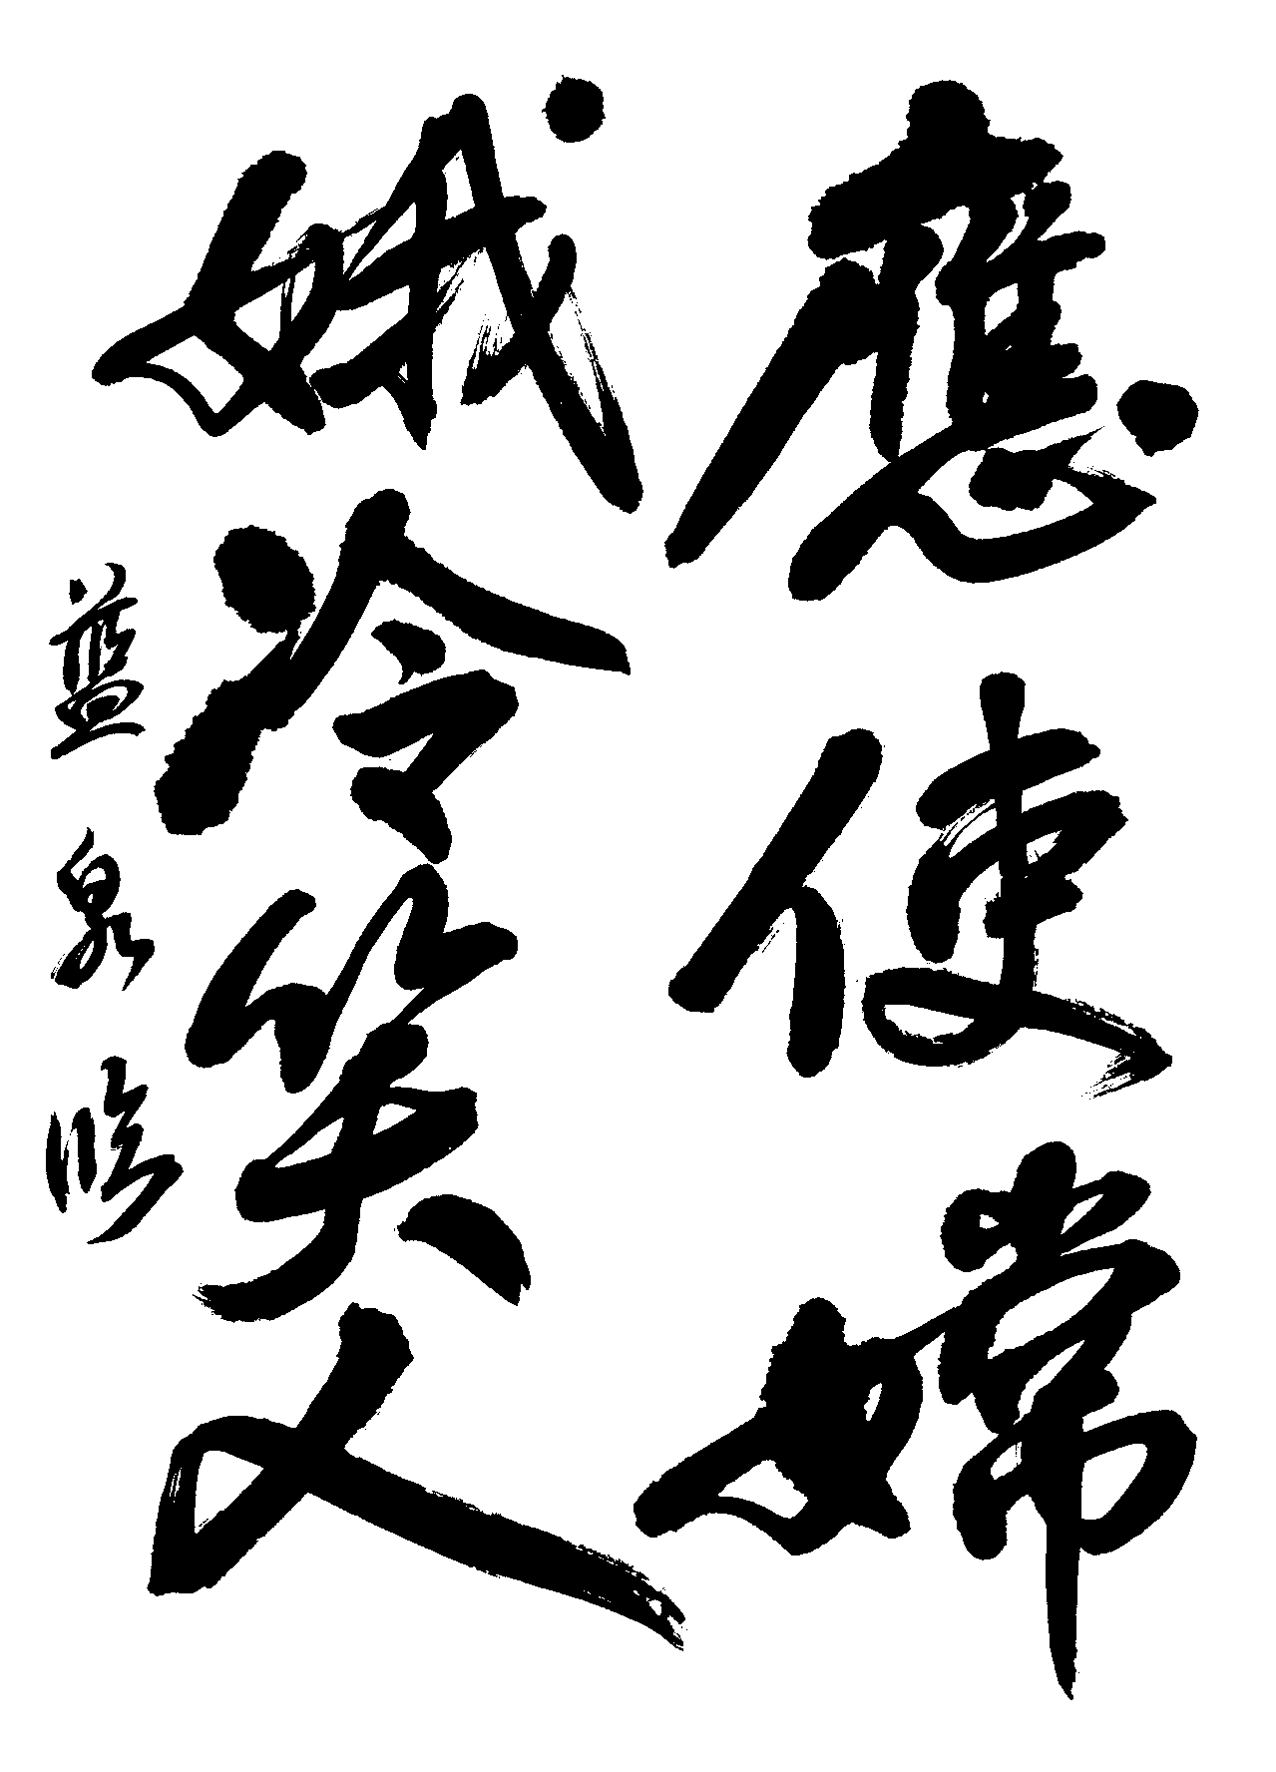 應使嫦
娥冷笑人
藍泉臨